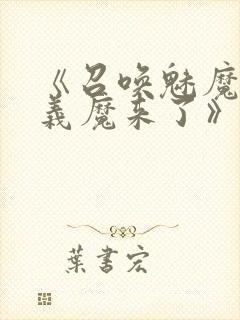 《召唤魅魔
義魔来了》
葉書宏